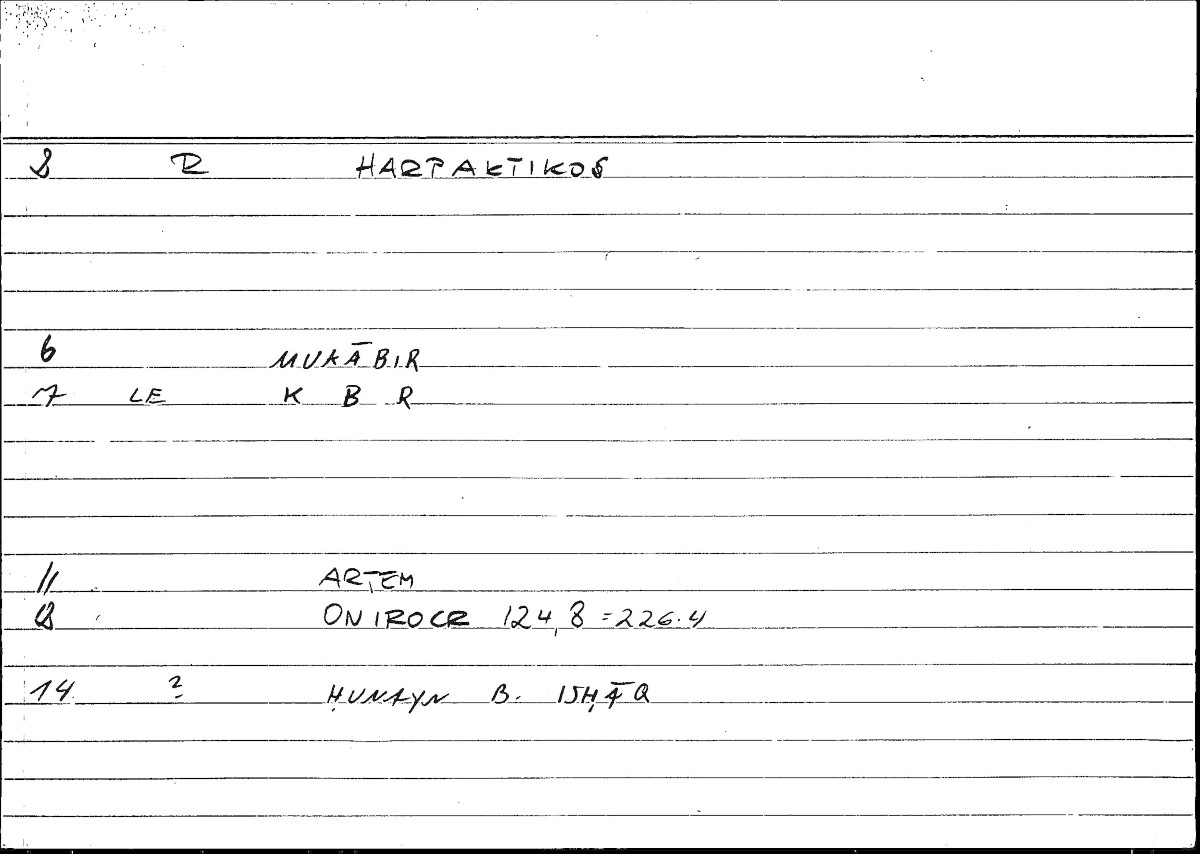 R HARPAKTIKOS
6 MUKĀBIR
7 LE K B R
11 ARṬEM
ONIROCR 124,8 = 226.4
14 ? ḤUNAYN B. ISḤĀQ